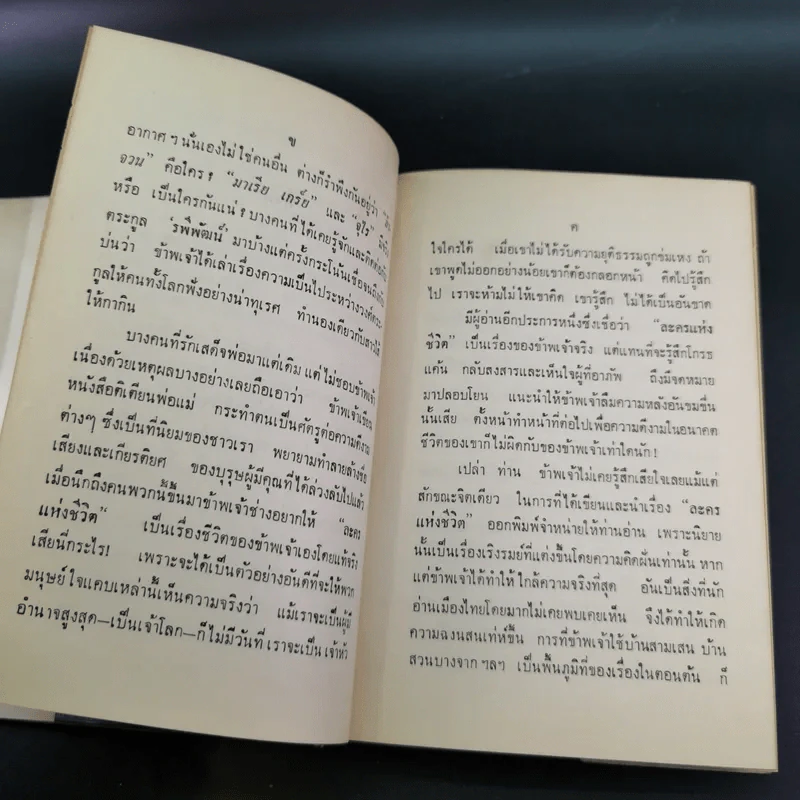 ข
อากาศฯ นั่นเองไม่ใช่คนอื่น ต่างก็รำพึงกันอยู่ว่า
จวน” คือใคร? “มาเรีย เกร์ย์” และ “จุไร”
หรือ เป็นใครกันแน่? บางคนที่ได้เคยรู้จักและ
ตระกูล ‘รพีพัฒน์’ มาบ้างแต่ครั้งกระโน้นเชื่อจน
บ่นว่า ข้าพเจ้าได้เล่าเรื่องความเป็นไประหว่างวงศ์
กูลให้คนทั้งโลกฟังอย่างน่าทุเรศ ทำนองเดียวกับ
ให้กากิน
บางคนที่รักเสด็จพ่อมาแต่เดิม แต่ไม่ชอบข้าพเจ้า
เนื่องด้วยเหตุผลบางอย่างเลยถือเอาว่า ข้าพเจ้าเขียน
หนังสือติเตียนพ่อแม่ กระทำตนเป็นศัตรูต่อความดีงาม
ต่างๆ ซึ่งเป็นที่นิยมของชาวเรา พยายามทำลายล้างชื่อ
เสียงและเกียรติยศ ของบุรุษผู้มีคุณที่ได้ล่วงลับไปแล้ว
เมื่อนึกถึงคนพวกนี้ขึ้นมาข้าพเจ้าช่างอยากให้ “ละคร
แห่งชีวิต” เป็นเรื่องชีวิตของข้าพเจ้าเองโดยแท้จริง
เสียนี่กระไร! เพราะจะได้เป็นตัวอย่างอันดีที่จะให้พวก
มนุษย์ใจแคบเหล่านี้เห็นความจริงว่า แม้เราจะเป็นผู้มี
อำนาจสูงสุด—เป็นเจ้าโลก—ก็ไม่มีวันที่เราจะเป็นเจ้าหัว
ค
ใจใครได้ เมื่อเขาไม่ได้รับความยุติธรรมถูกข่มเหง ถ้า
เขาพูดไม่ออกอย่างน้อยเขาก็ต้องกลอกหน้า คิดไปรู้สึก
ไป เราจะห้ามไม่ให้เขาคิด เขารู้สึก ไม่ได้เป็นอันขาด
มีผู้อ่านอีกประการหนึ่งซึ่งเชื่อว่า “ละครแห่ง
ชีวิต” เป็นเรื่องของข้าพเจ้าจริง แต่แทนที่จะรู้สึกโกรธ
แค้น กลับสงสารและเห็นใจผู้ที่อาภัพ ถึงมีจดหมาย
มาปลอบโยน แนะนำให้ข้าพเจ้าลืมความหลังอันขมขื่น
นั้นเสีย ตั้งหน้าทำหน้าที่ต่อไปเพื่อความดีงามในอนาคต
ชีวิตของเขาก็ไม่ผิดกับของข้าพเจ้าเท่าใดนัก!
เปล่า ท่าน ข้าพเจ้าไม่เคยรู้สึกเสียใจเลยแม้แต่
สักขณะจิตเดียว ในการที่ได้เขียนและนำเรื่อง “ละคร
แห่งชีวิต” ออกพิมพ์จำหน่ายให้ท่านอ่าน เพราะนิยาย
นั้นเป็นเรื่องเริงรมย์ที่แต่งขึ้นโดยความคิดฝันเท่านั้น หาก
แต่ข้าพเจ้าได้ทำให้ใกล้ความจริงที่สุด อันเป็นสิ่งที่นัก
อ่านเมืองไทยโดยมากไม่เคยพบเคยเห็น จึงได้ทำให้เกิด
ความฉงนสนเท่ห์ขึ้น การที่ข้าพเจ้าใช้บ้านสามเสน บ้าน
สวนบางจาก ฯลฯ เป็นพื้นภูมิที่ของเรื่องในตอนต้น ก็